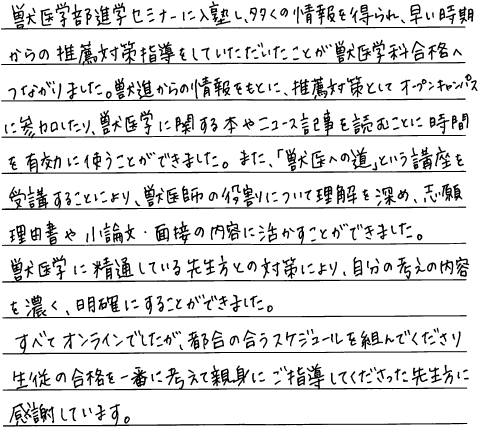 獣医学部進学セミナーに入塾し、多くの情報を得られ、早い時期
からの推薦対策指導をしていただいたことが獣医学科合格へ
つながりました。獣進からの情報をもとに、推薦対策としてオープンキャンパス
に参加したり、獣医学に関する本やニュース記事を読むことに時間
を有効に使うことができました。また、「獣医への道」という講座を
受講することにより、獣医師の役割について理解を深め、志願
理由書や小論文・面接の内容に活かすことができました。
獣医学に精通している先生方との対策により、自分の考えの内容
を濃く、明確にすることができました。
すべてオンラインでしたが、都合の合うスケジュールを組んでくださり
生徒の合格を一番に考えて親身にご指導してくださった先生方に
感謝しています。